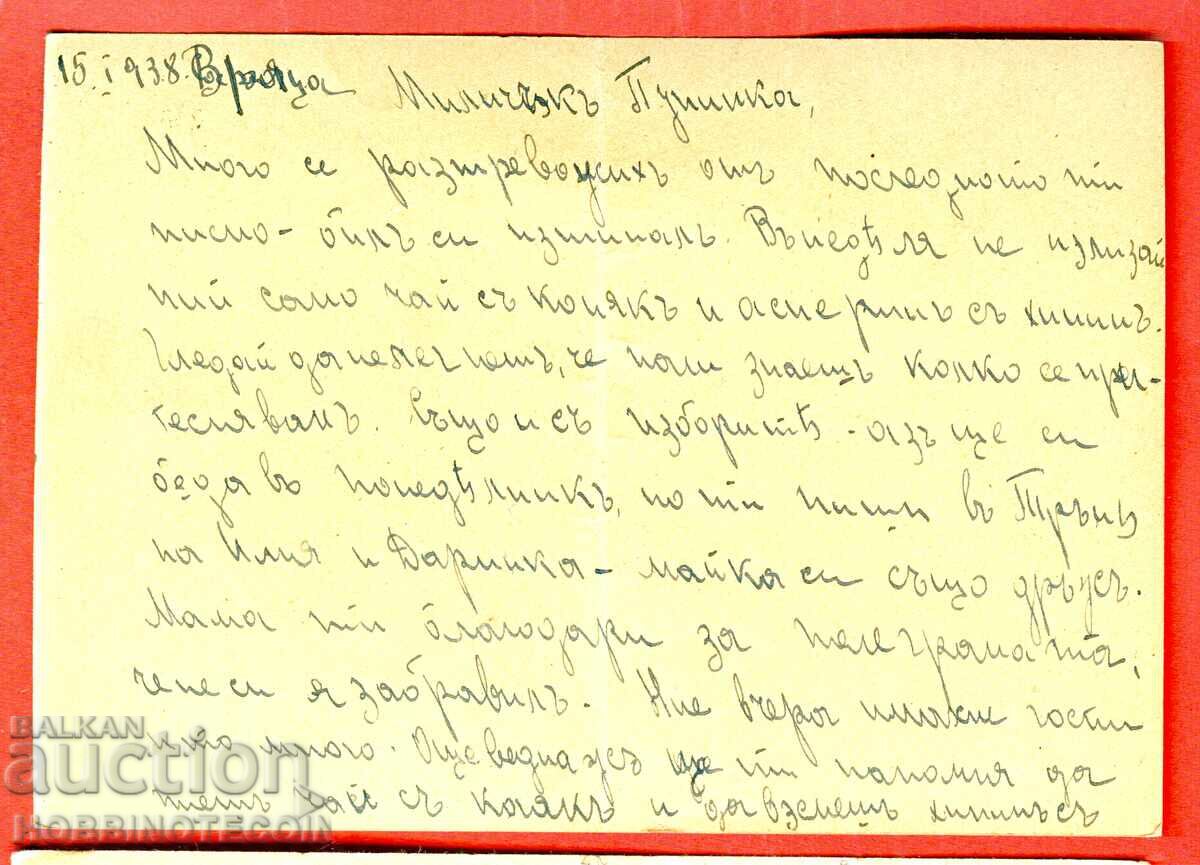 15.I.938. Враца Миличъкъ Пушинка,
Много се разтревожихъ отъ последното ти
писмо - билъ си изтиналъ. Въ неделя не излизай
пий само чай съ конякъ и асперинъ съ хининъ.
Гледай да не легнешъ, че нали знаешъ колко се при-
теснявамъ. Също и съ изборитѣ - азъ ще си
бѫда въ понедѣлникъ, но ти пиши въ Трънъ
на Илия и Даринка - майка си също друсъ.
Мама ти благодари за телеграмата,
че не си я забравилъ. Ние вчера имахме гости
много. Още веднажъ ще ти напомня да
пиешъ чай съ конякъ и да вземешъ хининъ съ
BALKAN
auction
HOBBINOTECOIN